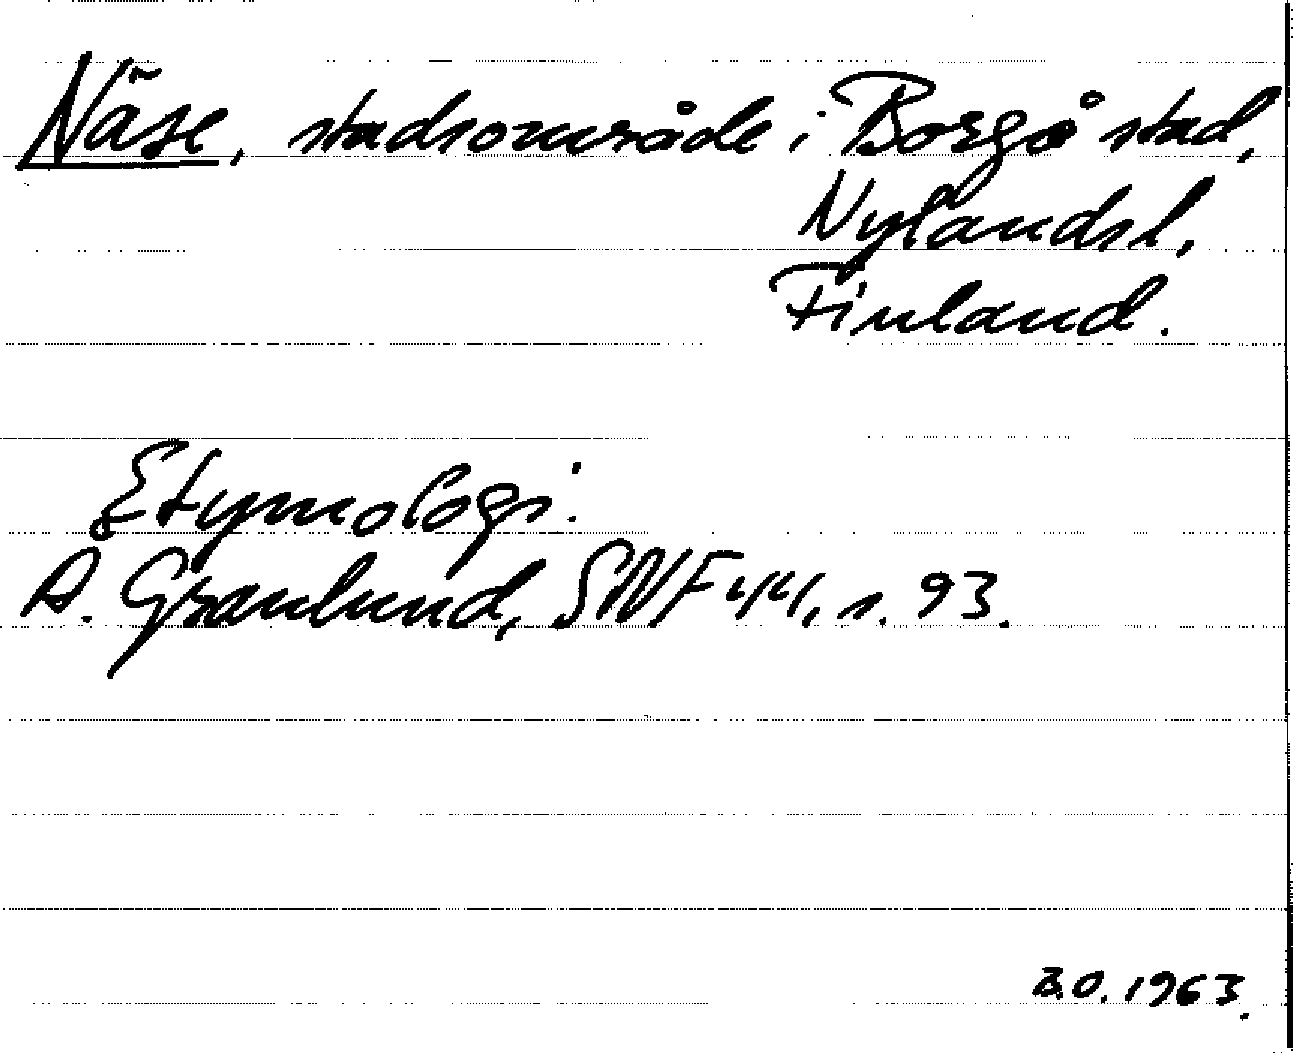 Näse, stadsområde i Borgå stad,
Nylandsl.,
Finland.
Etymologi.
A. Granlund, SNF 44, s. 93.
B.O. 1963.